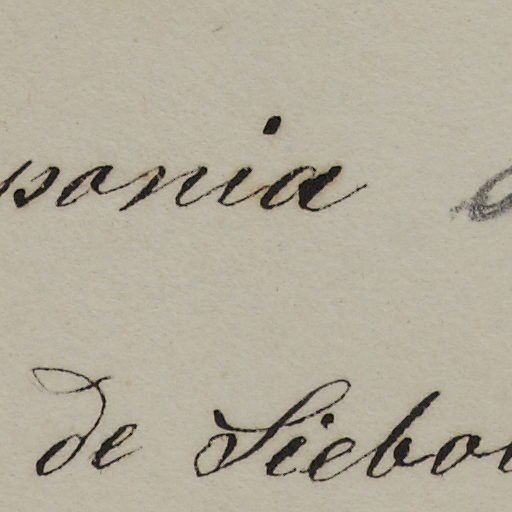 ponia
de Siebo